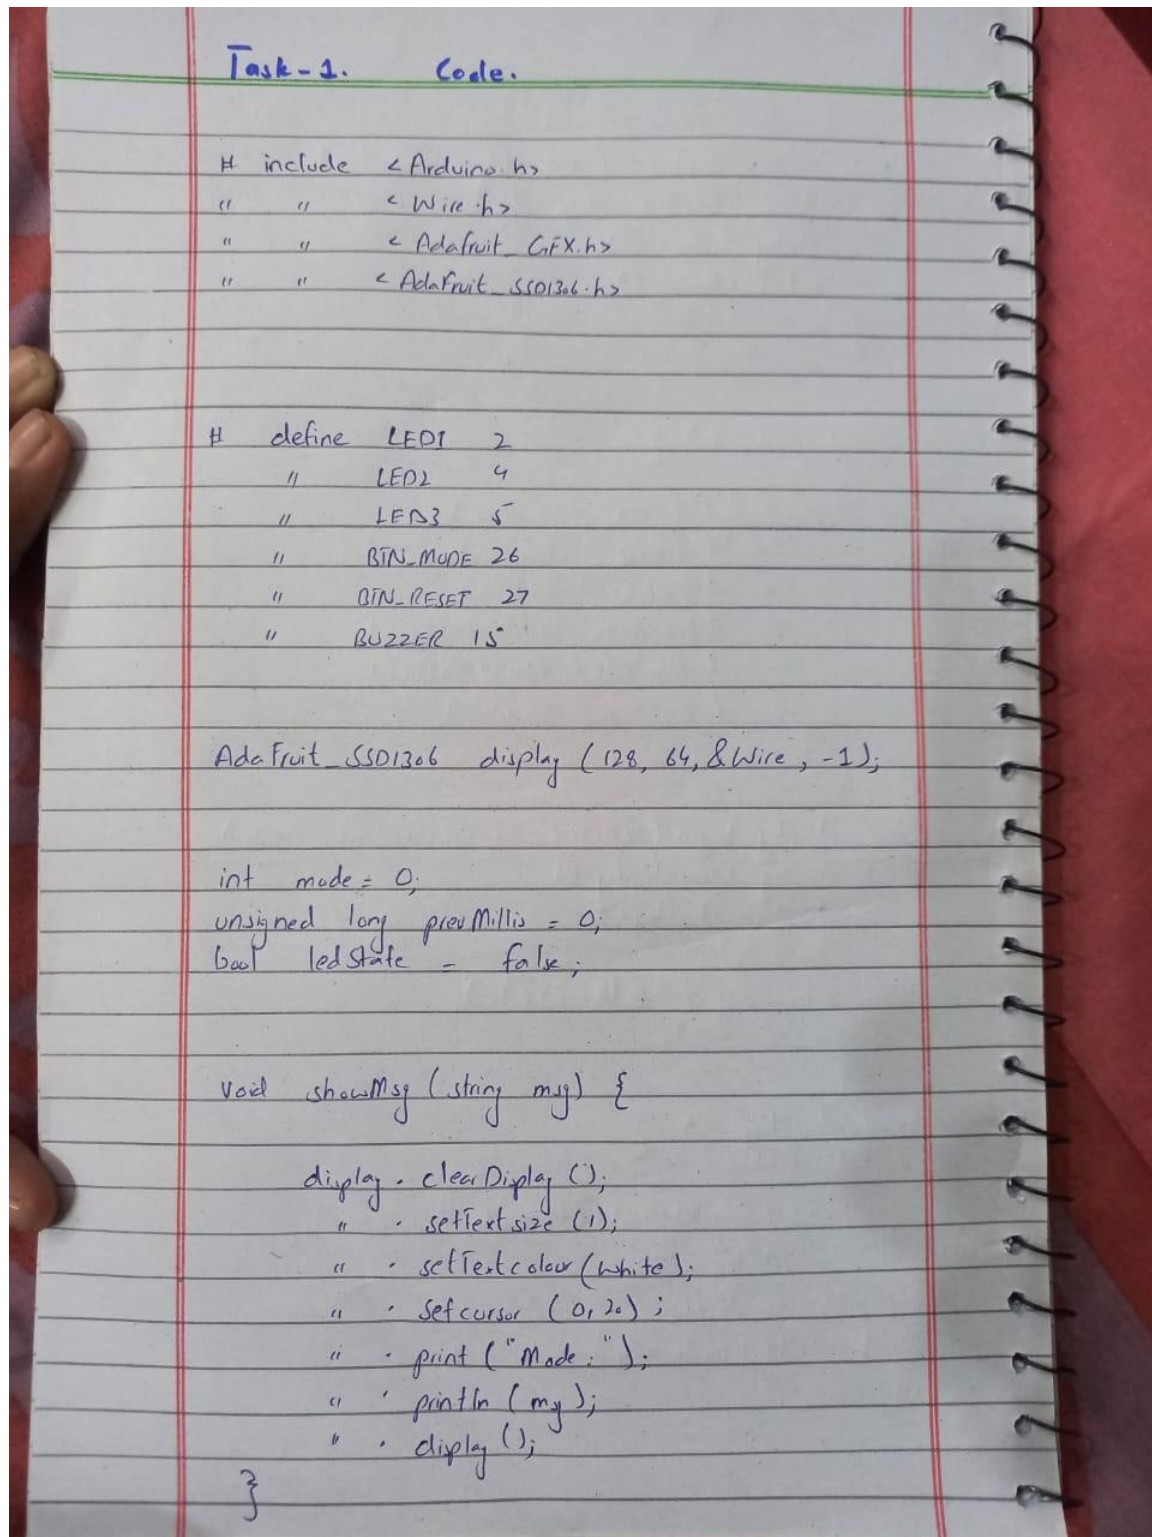 Task-1. Code.
# include <Arduino.h>
" " <Wire.h>
" " <Adafruit_GFX.h>
" " <AdaFruit_SSD1306.h>
# define LED1 2
" LED2 4
" LED3 5
" BTN_MODE 26
" BTN_RESET 27
" BUZZER 15
AdaFruit_SSD1306 display (128, 64, &Wire, -1);
int mode = 0;
unsigned long prevMillis = 0;
bool ledState = false;
void showMsg (string msg) {
display . clearDiplay ();
" . setTextsize (1);
" . setTextcolour (white);
" . setcursor (0, 20) ;
" . print ("Mode: ");
" . println (my);
" . display ();
}